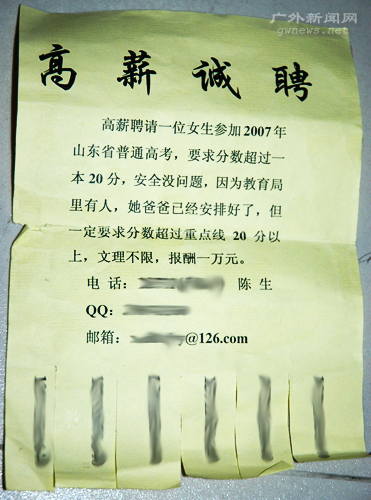 广外新闻网
gwnews.net
高薪诚聘
高薪聘请一位女生参加2007年
山东省普通高考，要求分数超过一
本20分，安全没问题，因为教育局
里有人，她爸爸已经安排好了，但
一定要求分数超过重点线 20 分以
上，文理不限，报酬一万元。
电 话： 陈 生
QQ：
邮箱： @126.com